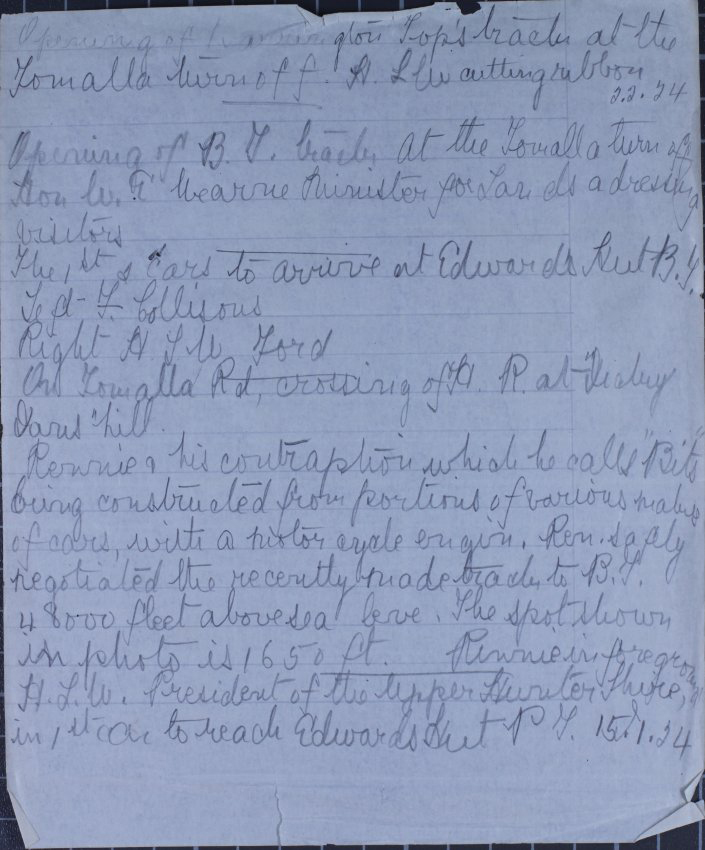 Opening of Barrington Top's track at the
Tomalla turn off. H. L. W cutting ribbon
2.2.24
Opening of B. T. track at the Tomalla turn off
Hon W. E. Wearne Minister for Lands adressing
visitors
The 1st 2 Cars to arrive at Edwards Hut B.T.
Left F. Collisons
Right H L W Ford
On Tomalla Rd, crossing of H. R. at
hill.
Rennie & his contraption which he calls "Bits"
being constructed from portions of various makes
of cars, with a motor cycle engin. Ren. safely
negotiated the recently made track to B.T.
48000 feet above sea leve. The spot shown
in photo is 1650 ft. Rennie in foreground
H. L. W. President of the Upper Hunter Shire,
in 1st car to reach Edwards Hut B T. 15.1.24